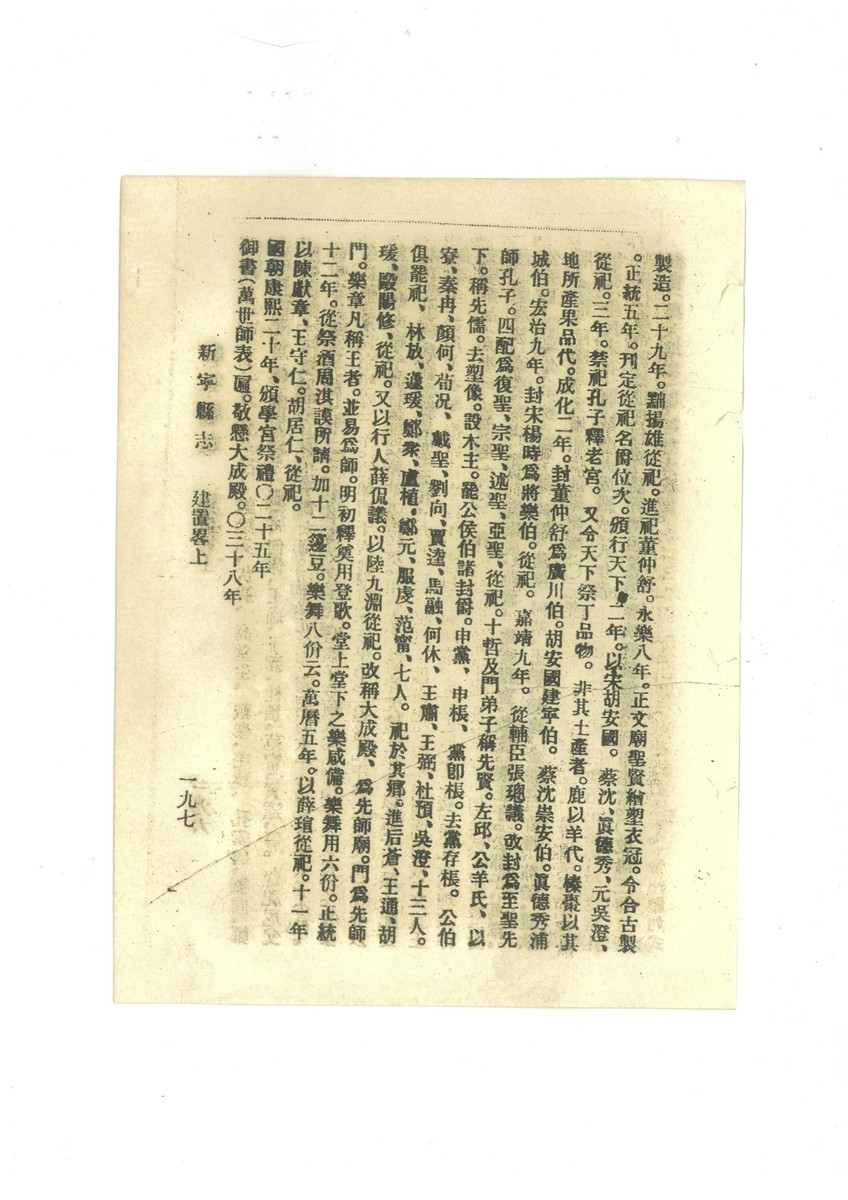 製造。二十九年。黜揚雄從祀。進祀董仲舒。永樂八年。正文廟聖賢繪塑衣冠。令合古製
。正統五年。刊定從祀名爵位次。頒行天下。二年。以宋胡安國。蔡沈、眞德秀、元吳澄、
從祀。三年。禁祀孔子釋老宮。又令天下祭丁品物。非其土產者。鹿以羊代。榛棗以其
地所產果品代。成化二年。封董仲舒爲廣川伯。胡安國建寧伯。蔡沈崇安伯。眞德秀浦
城伯。宏治九年。封宋楊時爲將樂伯。從祀。嘉靖九年。從輔臣張璁議。改封爲至聖先
師孔子。四配爲復聖、宗聖、述聖、亞聖、從祀。十哲及門弟子稱先賢。左邱、公羊氏、以
下。稱先儒。去塑像。設木主。罷公侯伯諸封爵。申黨、申棖、黨卽棖。去黨存棖。公伯
寮、秦冉、顏何、荀况、戴聖、劉向、賈逵、馬融、何休、王肅、王弼、杜預、吳澄、十三人。
俱罷祀、林放、蘧瑗、鄭衆、盧植、鄭元、服虔、范甯、七人。祀於其鄉。進后蒼、王通、胡
瑗、歐陽修、從祀。又以行人薛侃議。以陸九淵從祀。改稱大成殿、爲先師廟。門爲先師
門。樂章凡稱王者。並易爲師。明初釋奠用登歌。堂上堂下之樂咸備。樂舞用六份。正統
十二年。從祭酒周淇謨所請。加十二籩豆。樂舞八份云。萬曆五年。以薛瑄從祀。十一年
以陳獻章、王守仁。胡居仁、從祀。
國朝康熙二十年、頒學宮祭禮〇二十五年
御書（萬世師表）匾。敬懸大成殿。〇三十八年
新寧縣志 建置畧上
一九七